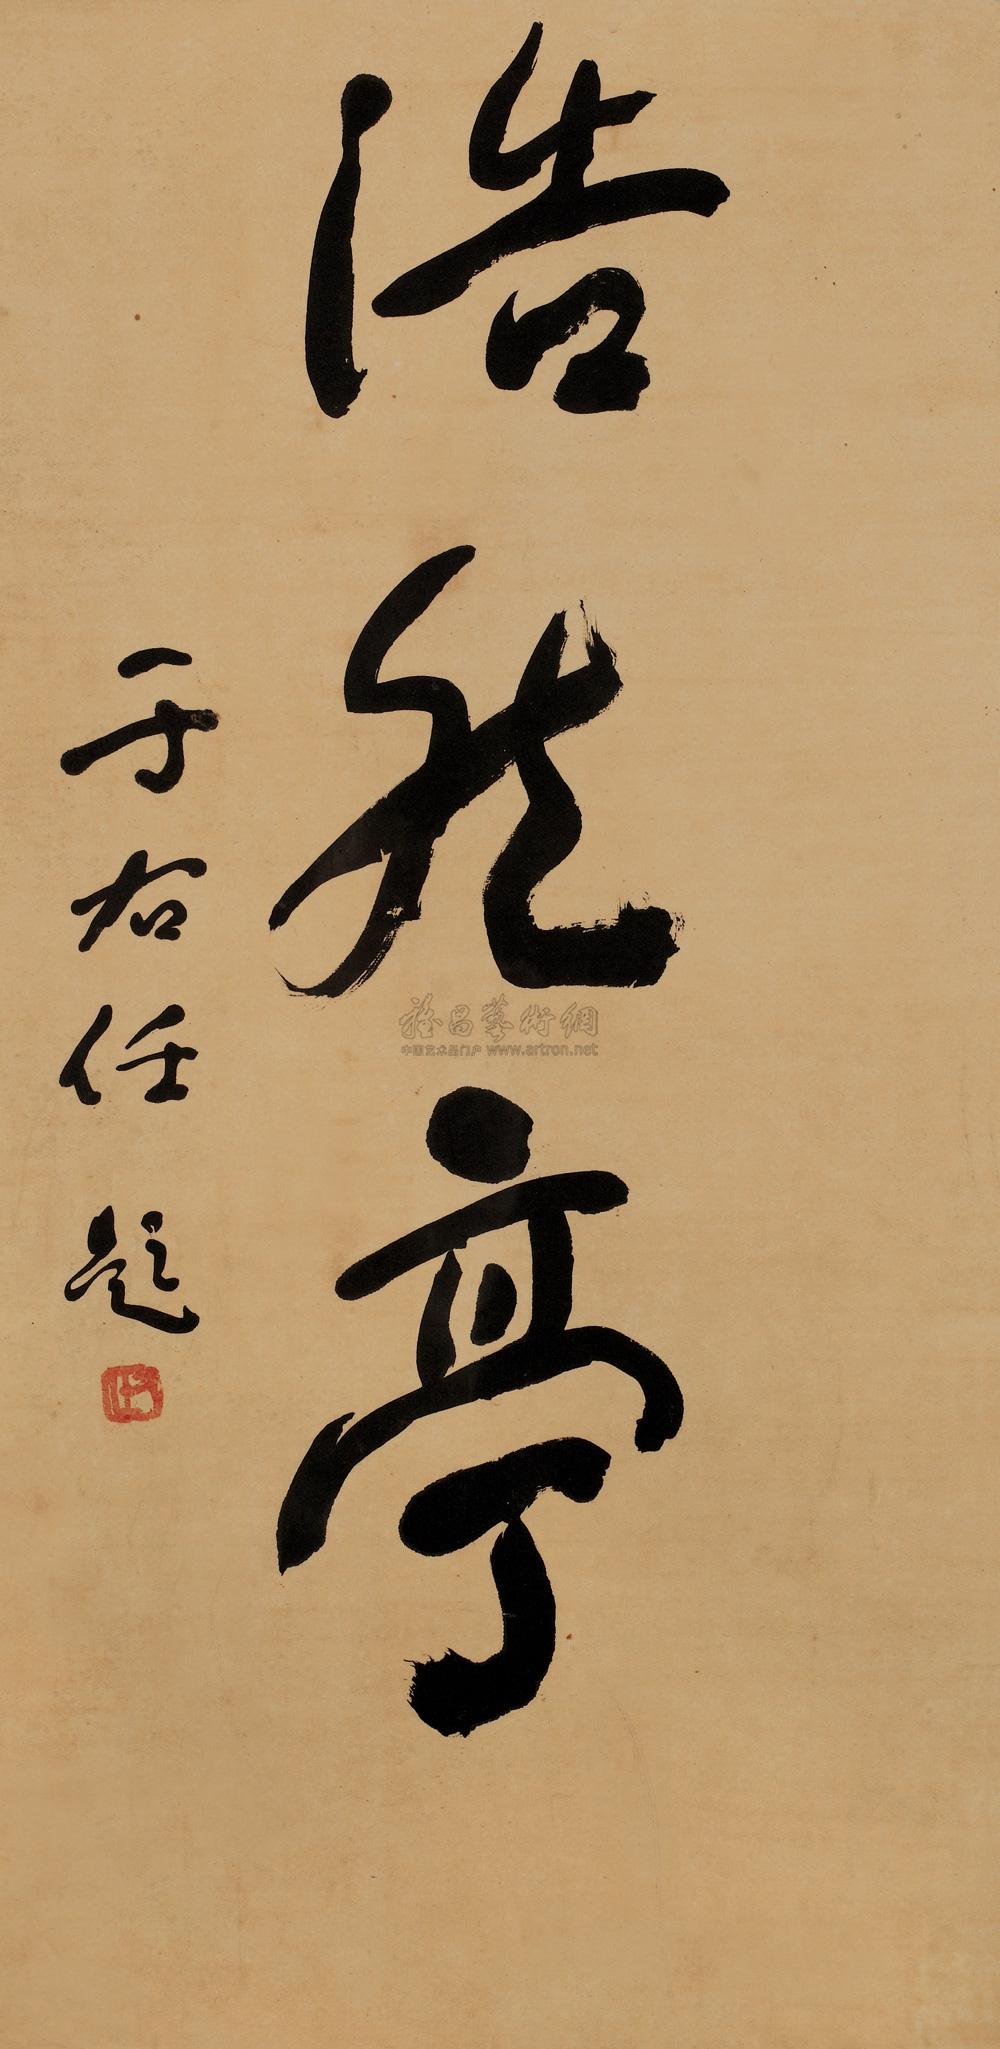 浩然亭
于右任 题
雅昌藝術網
中国艺术品门户 www.artron.net